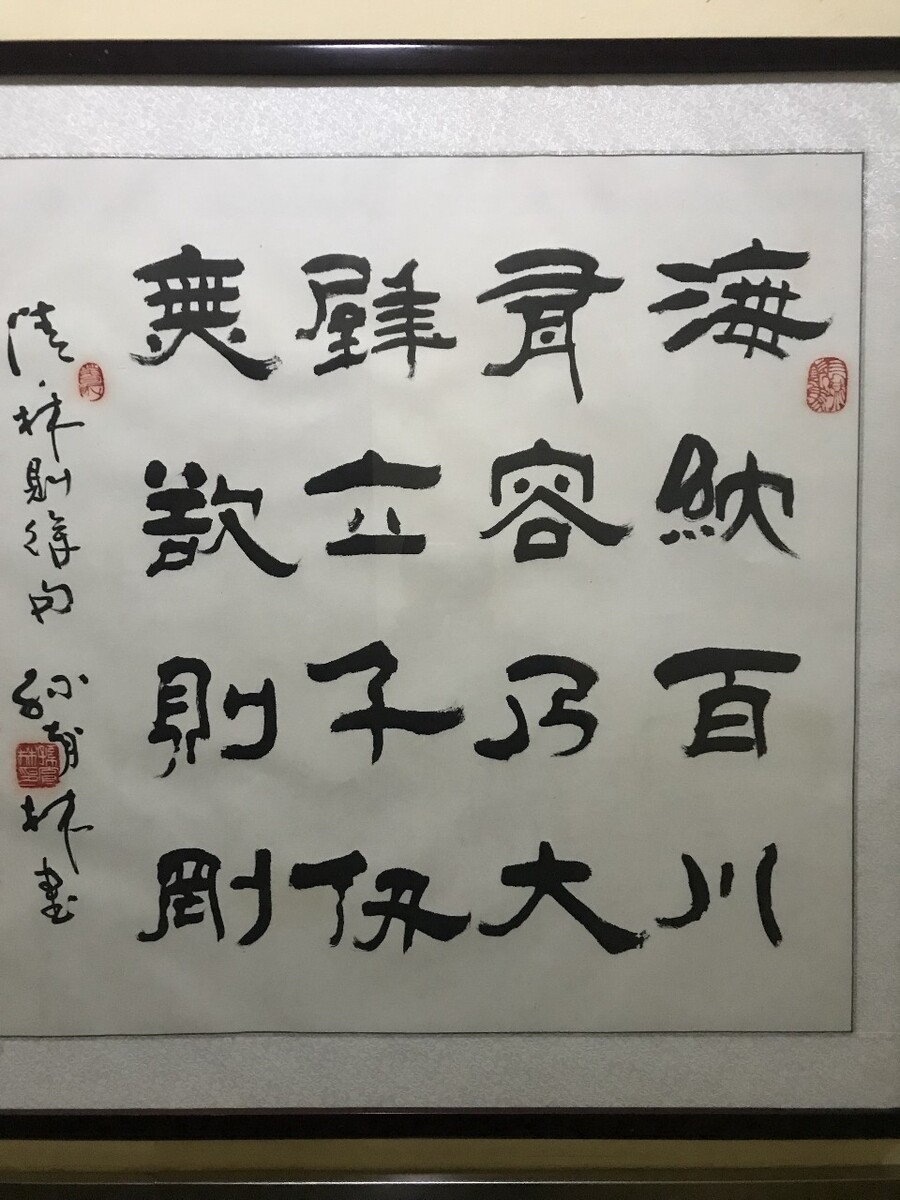 海納百川
有容乃大
壁立千仞
無欲則剛
清·林則徐句 孙林書